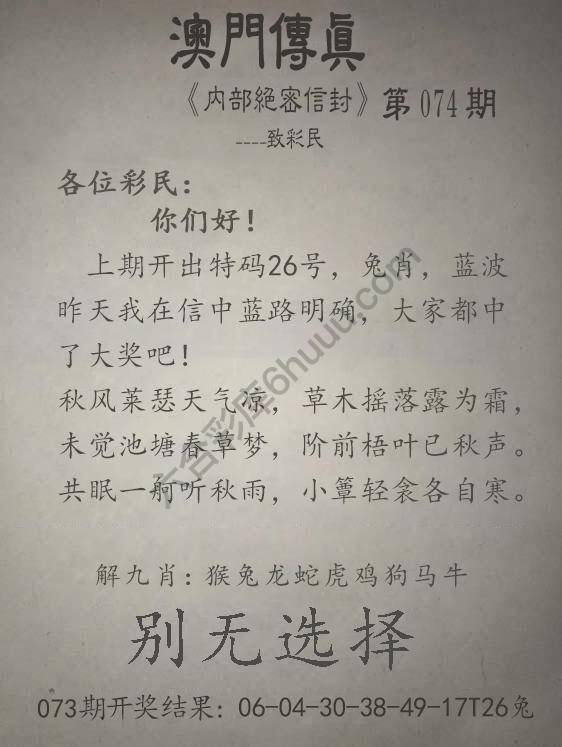 澳門傳眞
《内部絕密信封》第074期
----致彩民
各位彩民：
你们好！
上期开出特码26号，兔肖，蓝波
昨天我在信中蓝路明确，大家都中
了大奖吧！
秋风莱瑟天气凉，草木摇落露为霜，
未觉池塘春草梦，阶前梧叶已秋声。
共眠一舸听秋雨，小簟轻衾各自寒。
解九肖：猴兔龙蛇虎鸡狗马牛
别无选择
073期开奖结果：06-04-30-38-49-17T26兔
六合彩库6huuu.com